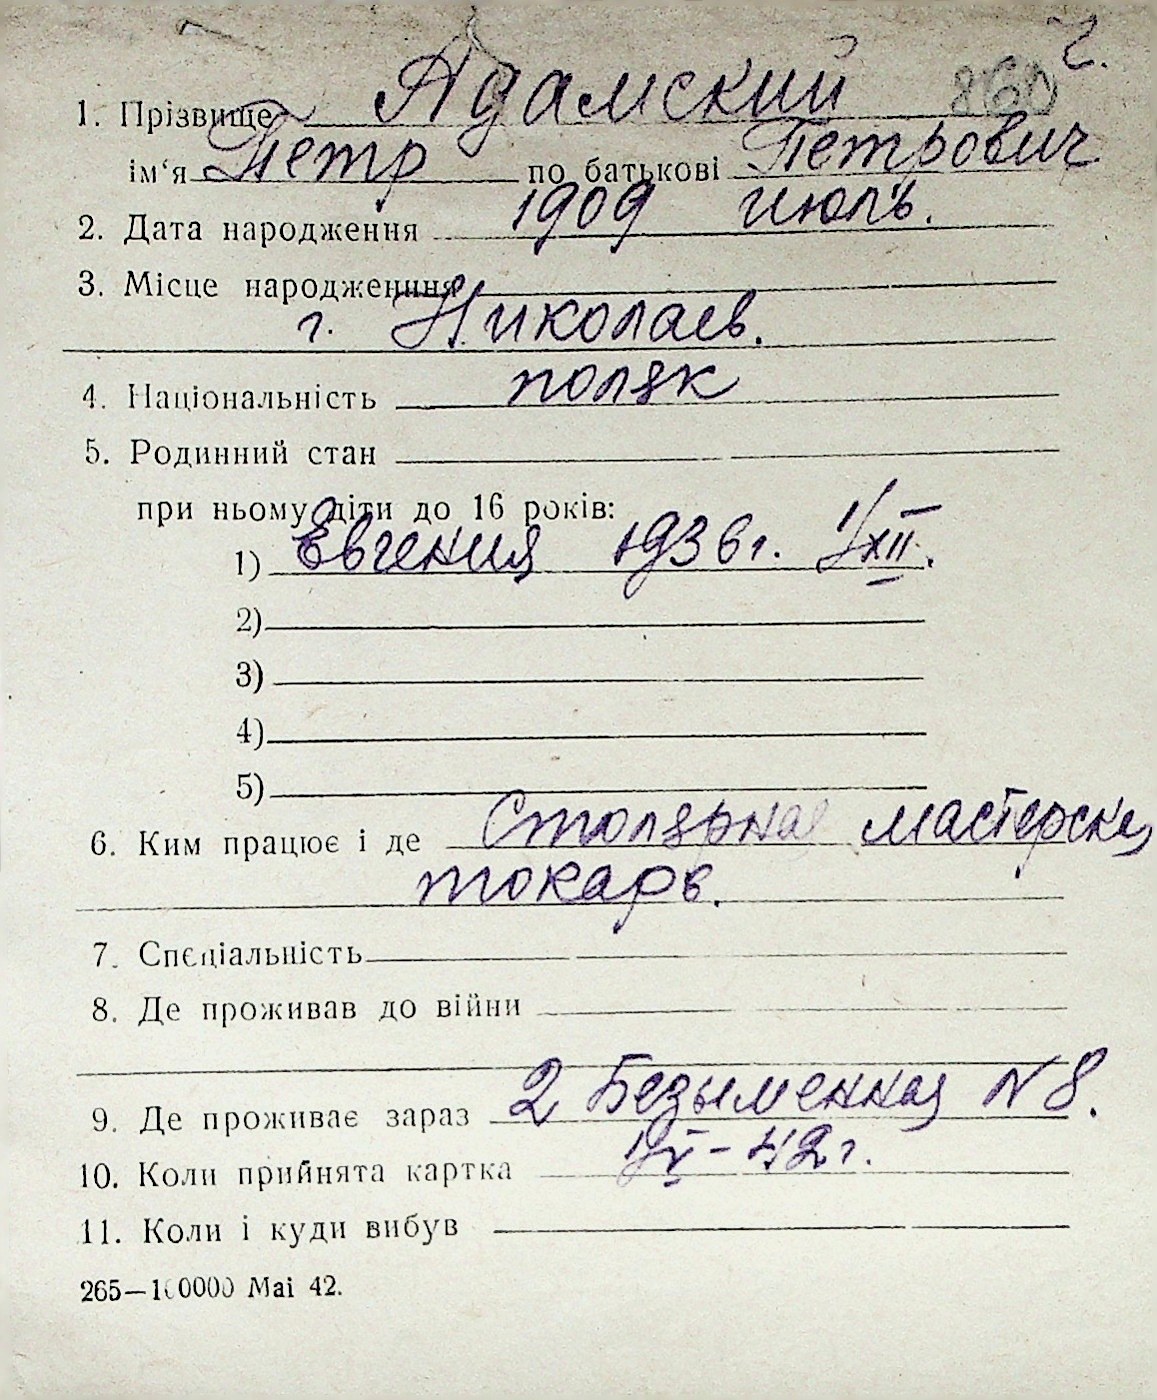 г.
860
1. Прізвище Адамский
ім‘я Петр по батькові Петрович
2. Дата народження 1909 июль.
3. Місце народженння
г. Николаев.
4. Національність поляк
5. Родинний стан
при ньому діти до 16 років:
1) Евгения 1936 г. 1/XII.
2)
3)
4)
5)
6. Ким працює і де Столярная мастерская
токарь.
7. Спеціальність
8. Де проживав до війни
9. Де проживає зараз 2 Безыменная N 8.
10. Коли прийнята картка 42 г.
11. Коли і куди вибув
265—100000 Mai 42.